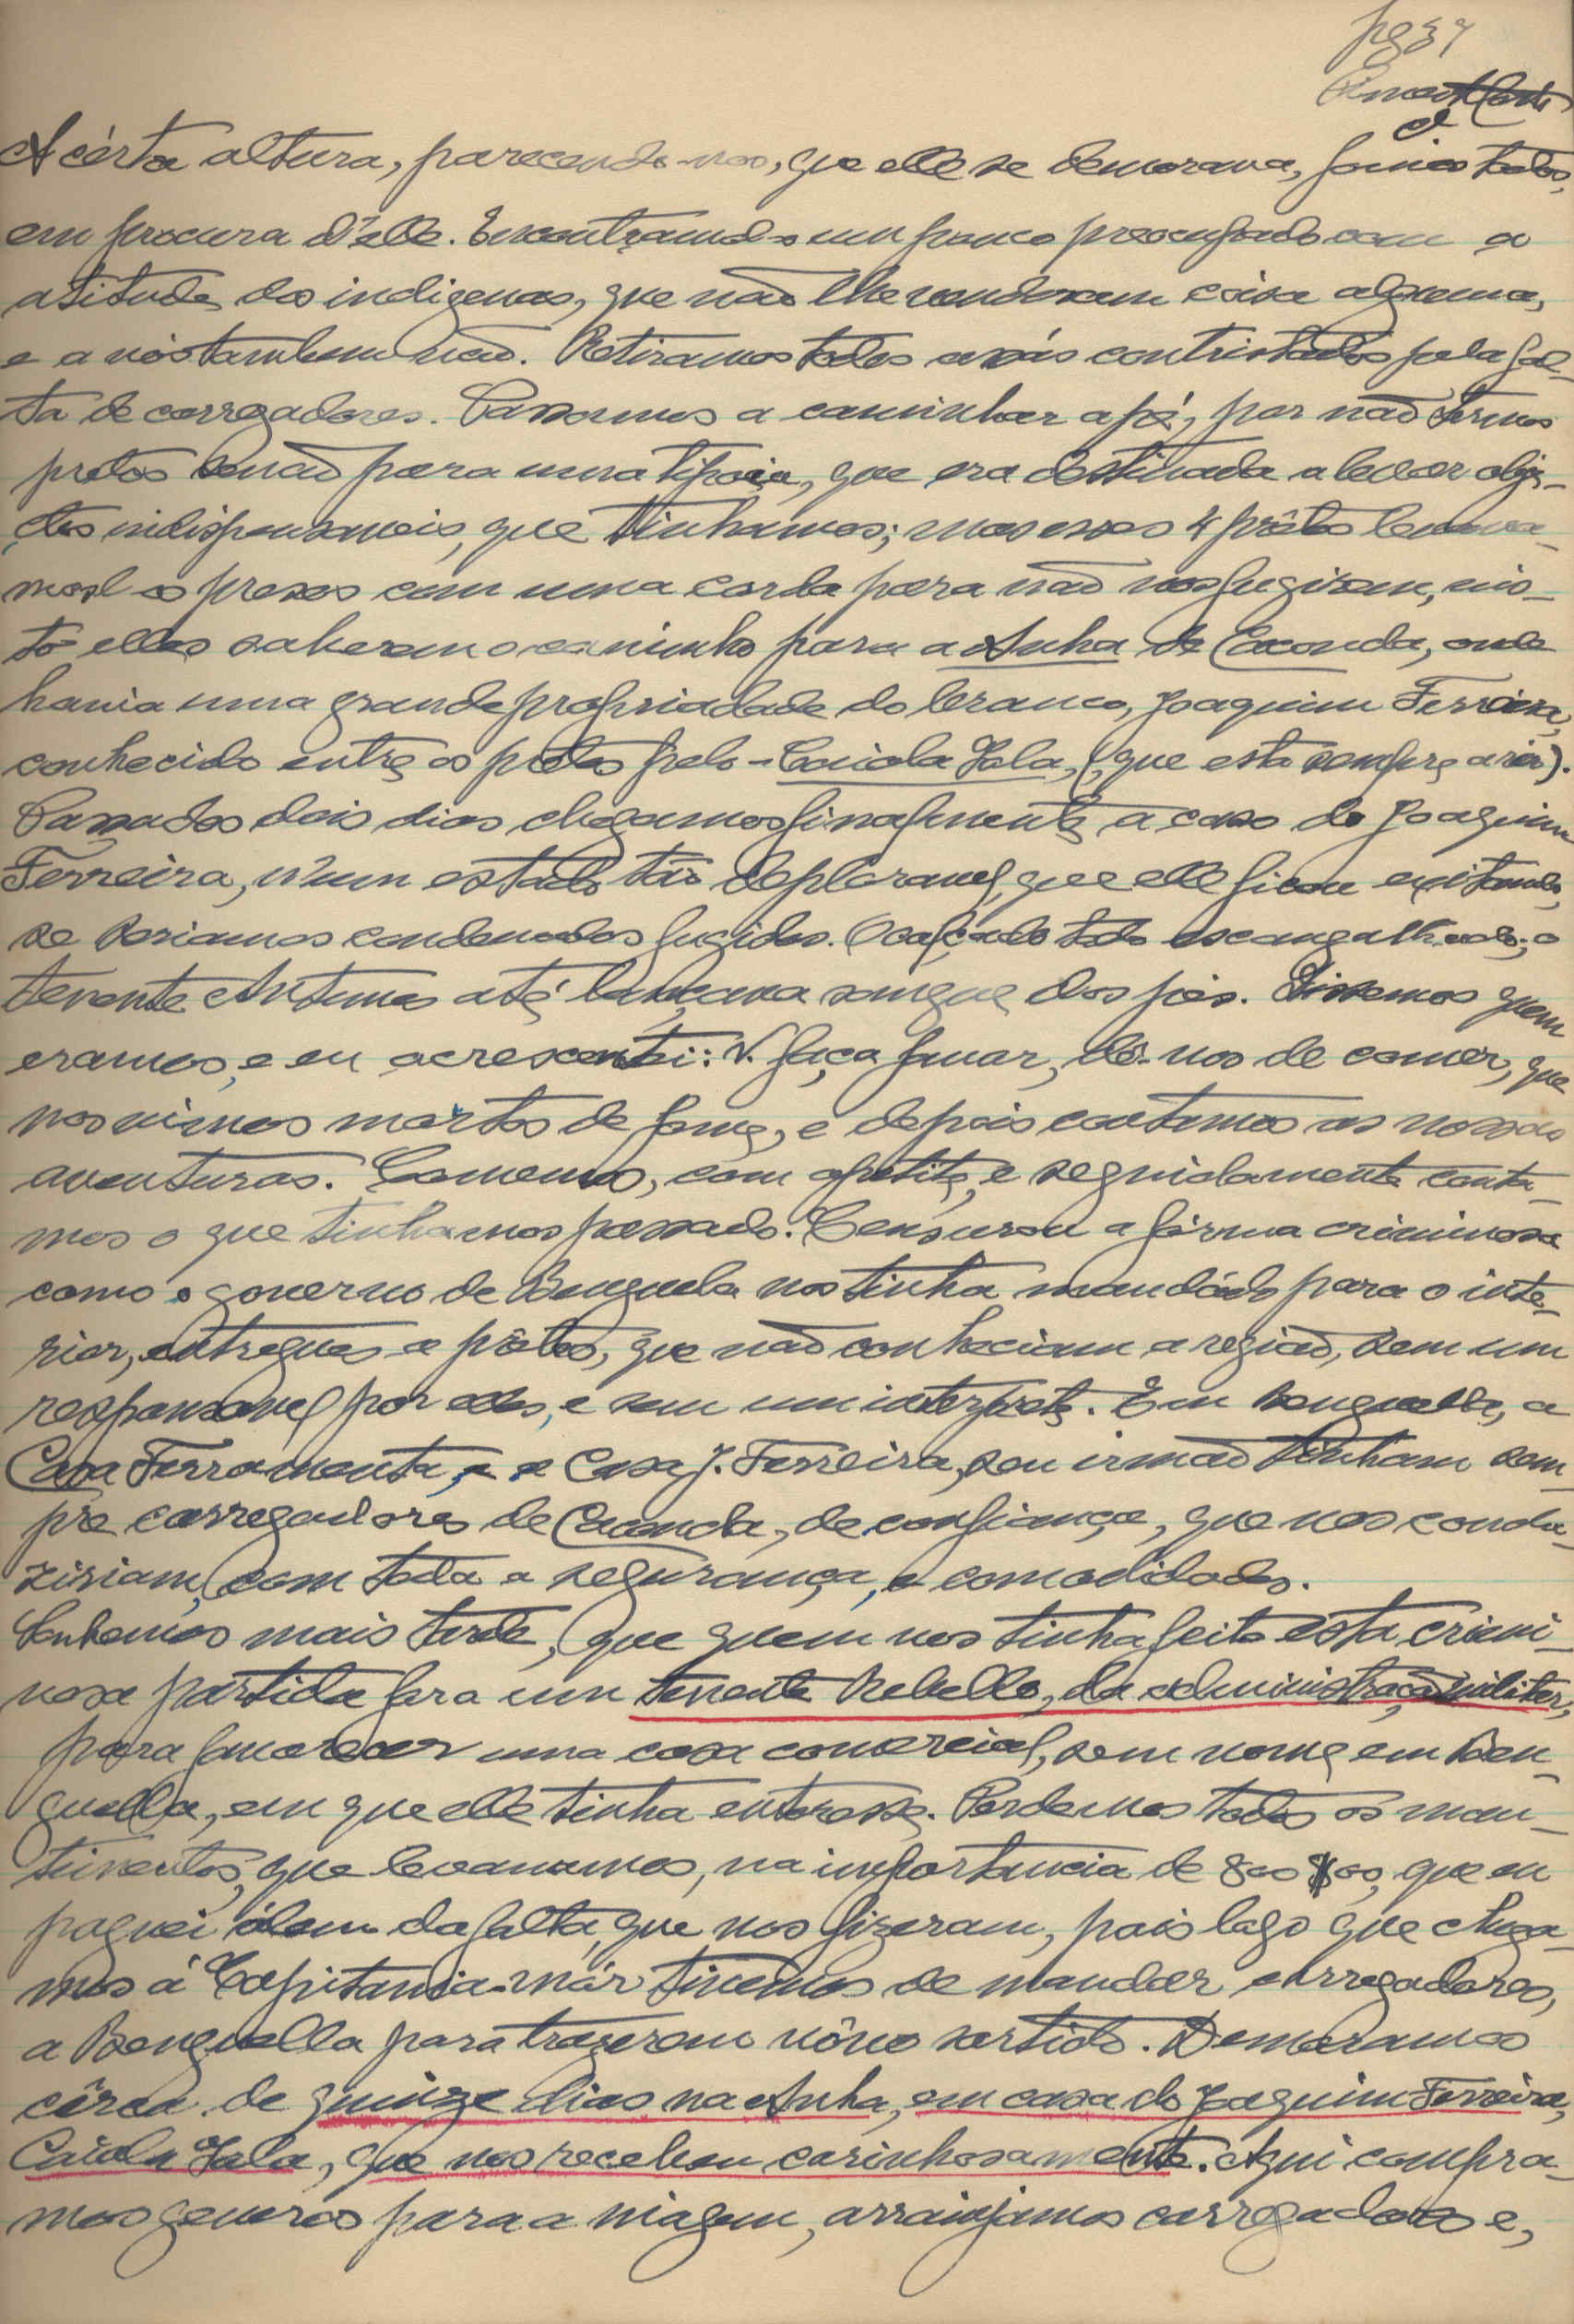 pg 37
A cérta altura, parecendo-nos, que elle se demorava, fomos todos,
em procura d'elle. Encontramol-o um pouco preocupado com a
atitude dos indigenas, que não lhe venderam coisa alguma,
e a nós tambem não. Retiramos todos contristados pela fal-
ta de carregadores. Passamos a caminhar a pé, por não termos
pretos senão para uma tipoia, que era destinada a levar obje-
ctos indispensaveis, que tinhamos; mas esses 4 prêtos levava-
mol-os presos com uma corda para não nos fugirem, vis-
to elles saberem o caminho para a Anha de Caconda, onde
havia uma grande propriedade do branco, Joaquim Ferreira,
conhecido entre os prêtos pelo - Caiola Jala, (que esta sempre a rir).
Passados dois dias chegamos finalmente a casa do Joaquim
Ferreira, n'um estado tão deploravel, que elle ficou exitando,
se seriamos condenados fugidos. O calçado todo escangalhado; o
tenente Antunes até lançava sangue dos pés. Dissemos quem
eramos, e eu acrescentei: V. faça favar, dê-nos de comer, que
nos vimos mortos de fome, e depois contamos as nossas
aventuras. Comemos, com apetite, e seguidamente conta-
mos o que tinhamos passado. Censurou a fórma criminosa
como o governo de Benguela nos tinha mandádo para o inte-
rior, entregues a prêtos, que não conheciam a região, sem um
responsavel por elles, e sem um interprete. Em Benguella, a
Casa Ferramenta, e a Casa J. Ferreira, seu irmão tinham sem-
pre carregadores de Caconda, de confiança, que nos condu-
ziriam, com toda a segurança, e comodidades.
Soubemos mais tarde, que quem nos tinha feito esta crimi-
nosa partida fora um tenente Rebello, da administração militar,
para favorecer uma casa comercial, sem nome em Ben-
guella, em que elle tinha enteresse. Perdemos todos os man-
timentos, que levavamos, na importancia de 800$00, que eu
paguei álem da falta, que nos fizeram, pois logo que chega-
mos á Capitania-mór tivemos de mandar carregadores,
a Benguella para trazerem nôvo sortido. Demoramos
cêrca de quinze dias na Anha, em casa do Joaquim Ferreira,
Caiola Jala, que nos recebeu carinhosamente. Aqui compra-
mos generos para a viagem, arranjamos carregadores e,